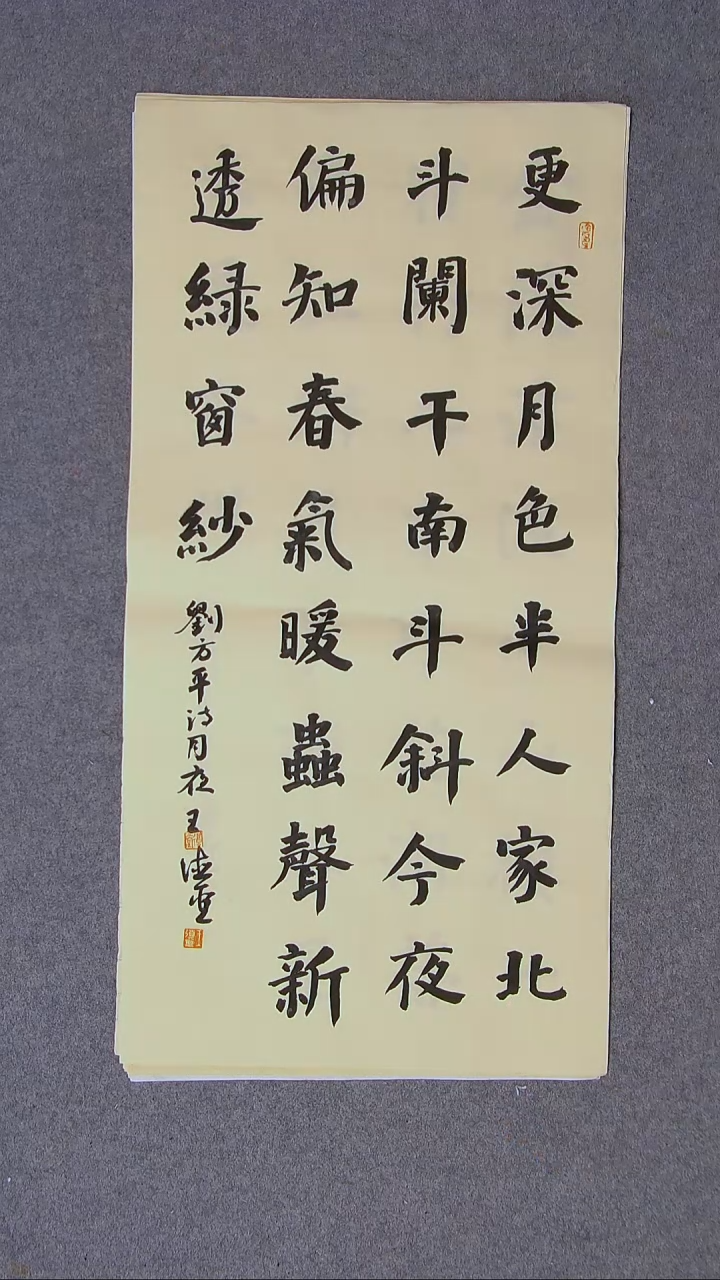 更深月色半人家北
斗闌干南斗斜今夜
偏知春氣暖蟲聲新
透綠窗紗
劉方平詩月夜王